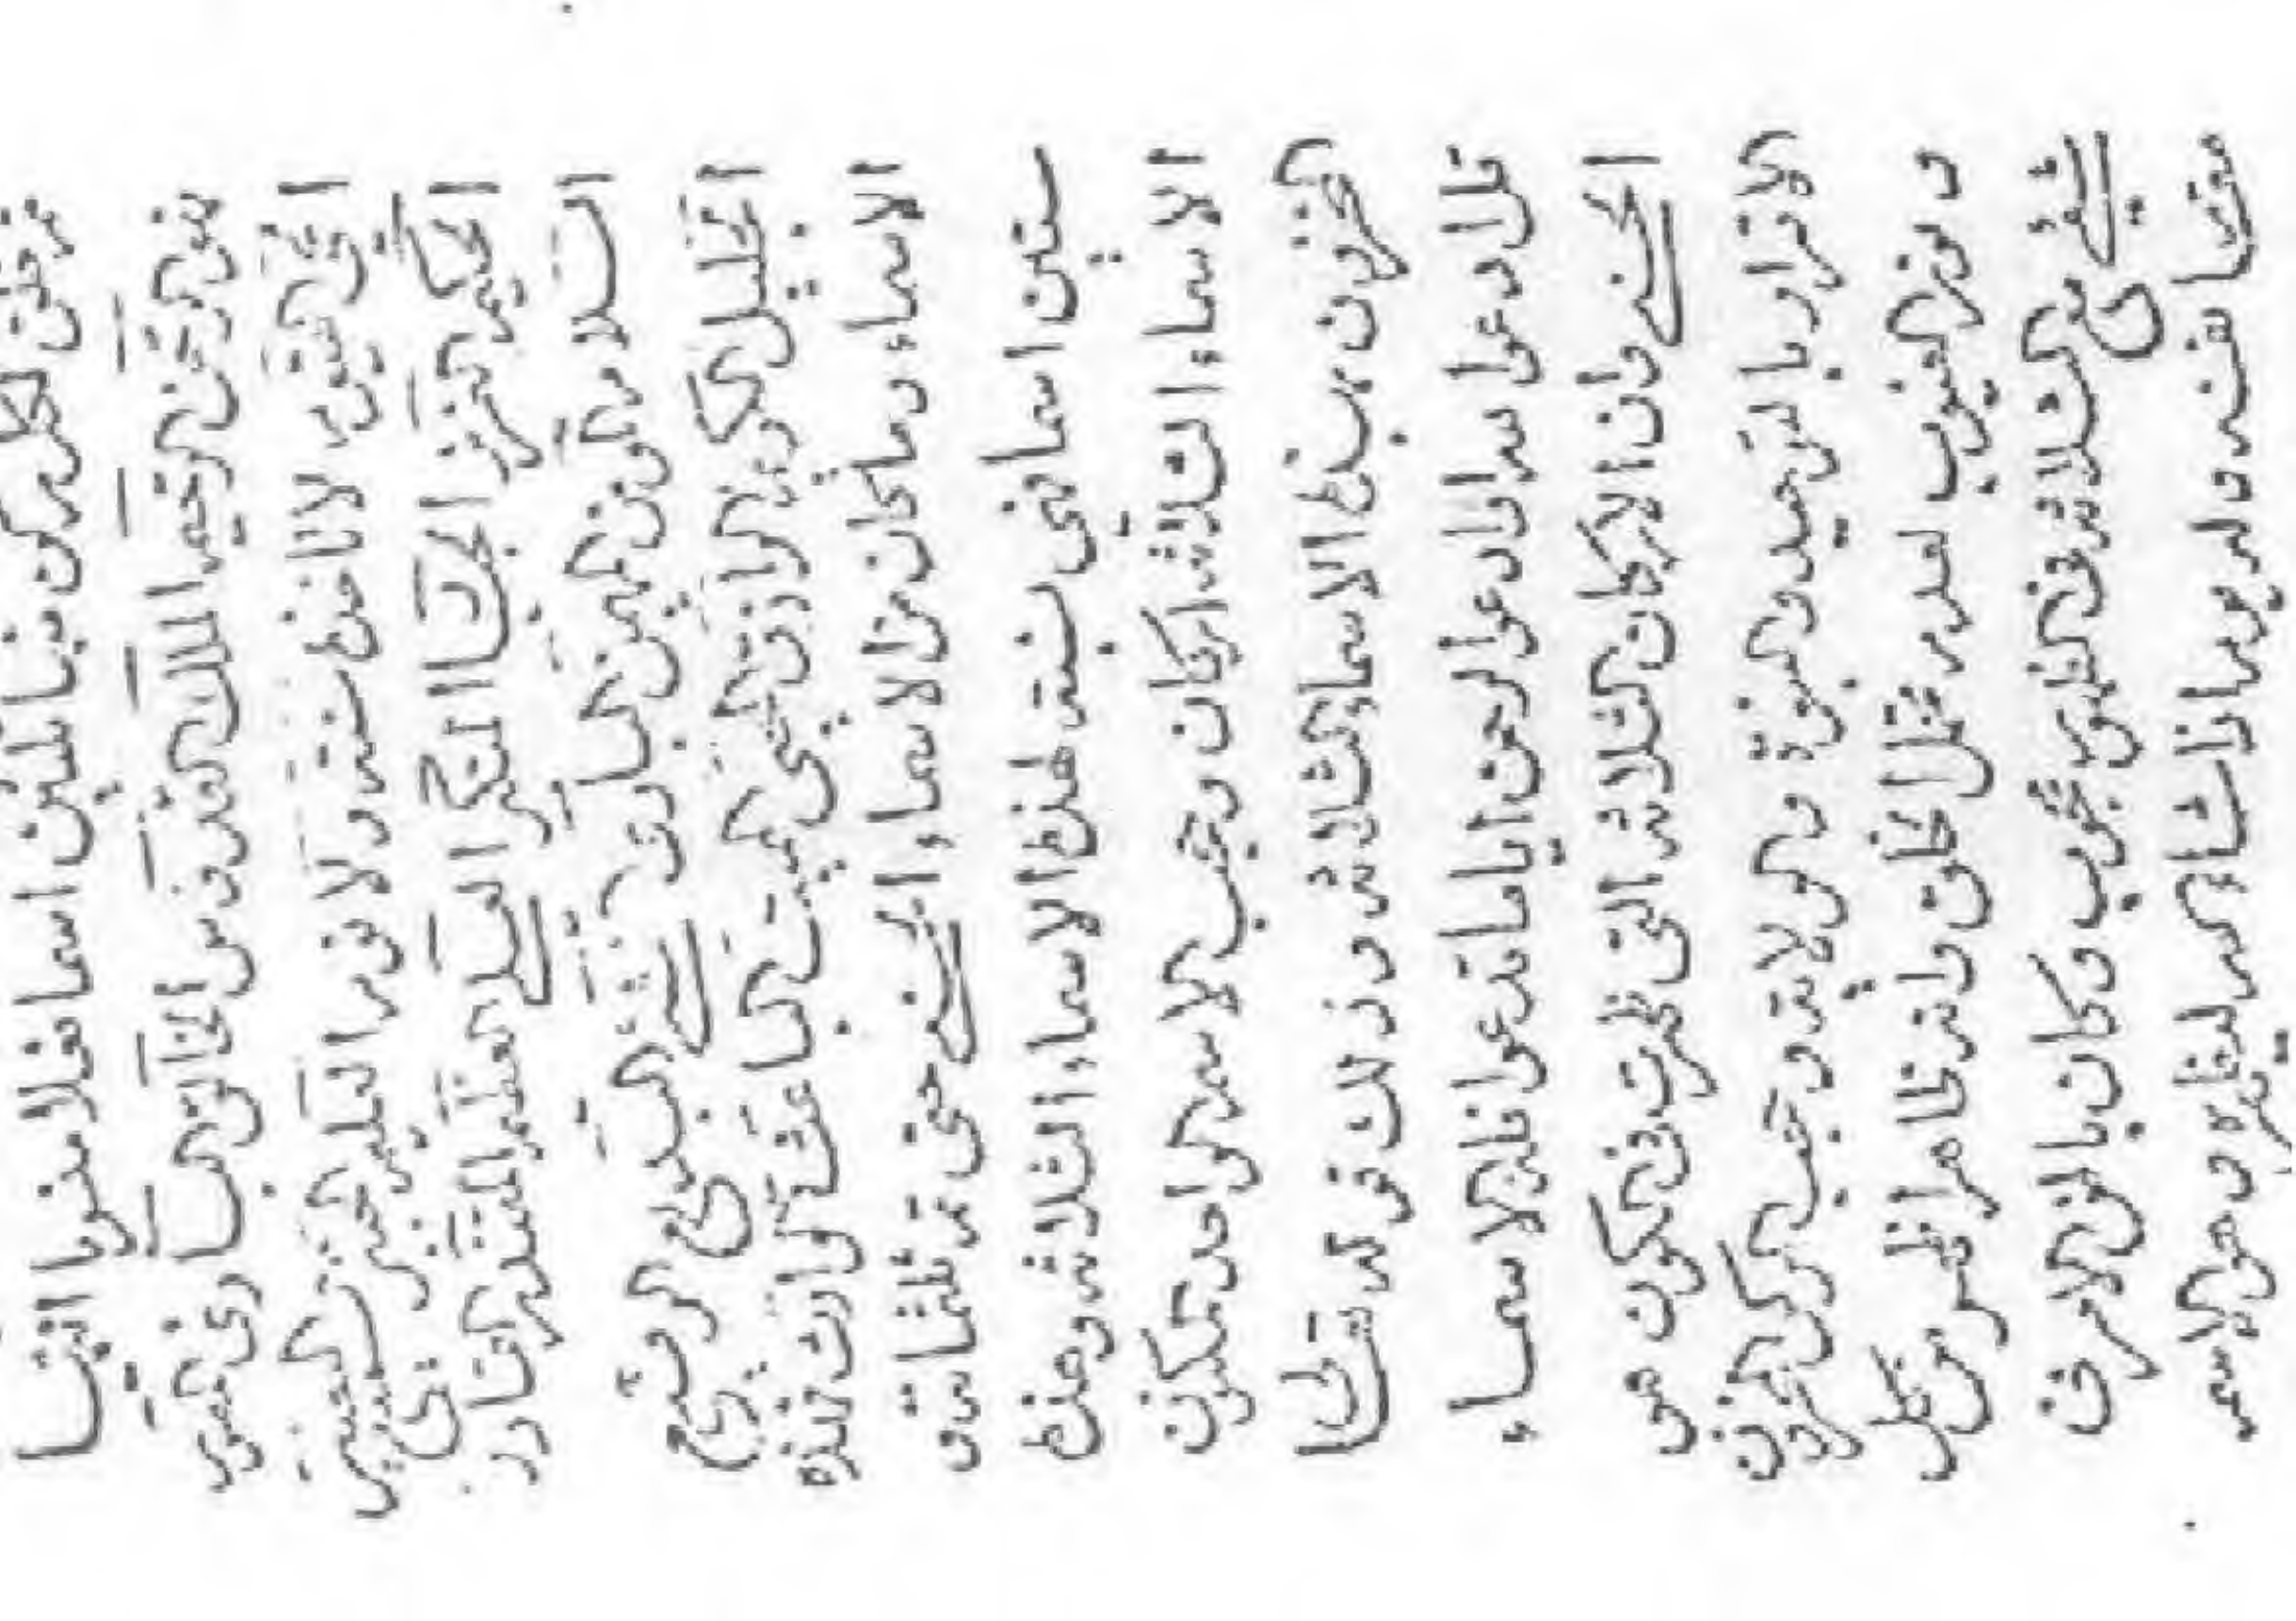 ثم خلق لكل ركن منها ثلثين اسما فعلا منسوبا اليها
فهو الرحمن الرحيم الملك القدوس الخالق البارئ المصور
الحي القيوم لا تاخذه سنة ولا نوم العليم الخبير السميع البصير
الحكيم العزيز الجبار المتكبر العلي العظيم المقتدر القادر
السلام المؤمن المهيمن البارئ المنشئ البديع الرفيع
الجليل الكريم الرازق المحيي المميت الباعث الوارث فهذه
الاسماء وما كان من الاسماء الحسنى حتى تتم ثلثمائة و
ستين اسما فهي نسبة لهذه الاسماء الثلاثة وهذه
الاسماء الثلاثة اركان وحجب الاسم الواحد المكنون
المخزون بهذه الاسماء الثلاثة وذلك قوله تعالى
قل ادعوا الله او ادعوا الرحمن اياما تدعوا فله الاسماء
الحسنى وأن الاركان الثلاثة التي ظهرت في الكون هو
الاقرار بالتوحيد والنبوة والولاية وحجب الركن المخزون
و الغيوب لعدم تحمل الخلق وانه ظاهر أظهر من كل
شيء الثلاثة في الظهور محجوب وكان
لنفسه ولم يرها اذا شاء الله لغيره وهو الاسم